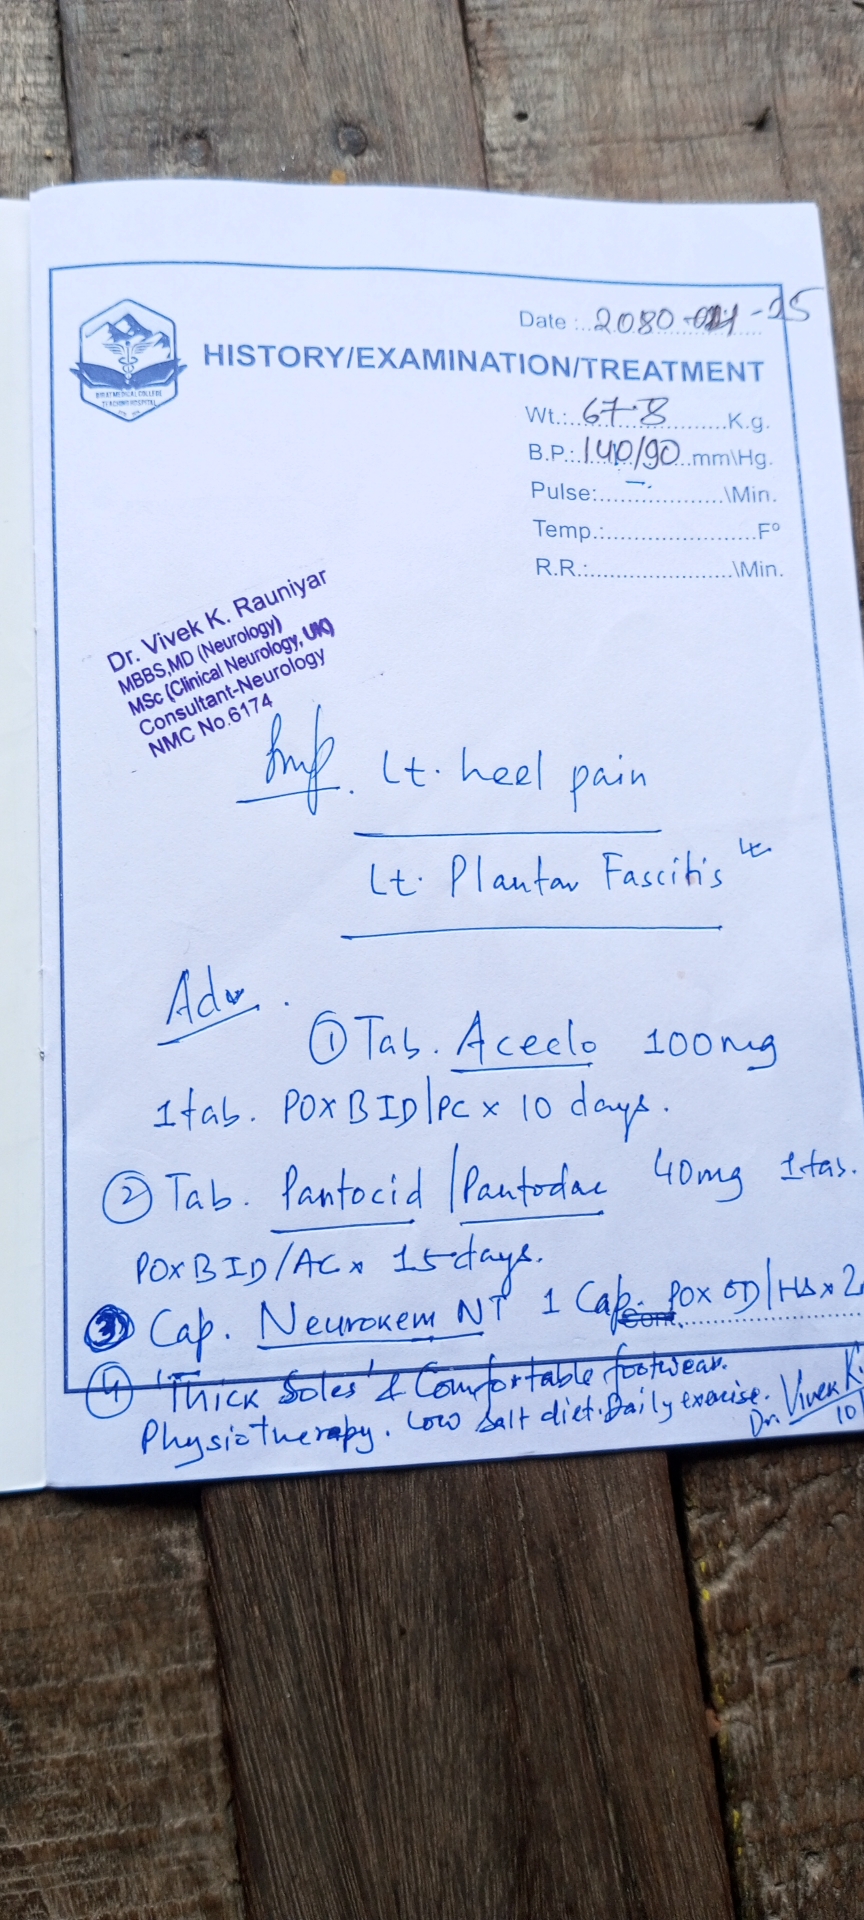 Date :..2080-04-25
HISTORY/EXAMINATION/TREATMENT
BIRAT MEDICAL COLLEGE
TEACHING HOSPITAL
Wt.:..67.8..........K.g.
B.P.:.140/90..mm\Hg.
Pulse:....-................\Min.
Temp.:......................F°
R.R.:.......................\Min.
Dr. Vivek K. Rauniyar
MBBS,MD (Neurology)
MSc (Clinical Neurology, UK)
Consultant-Neurology
NMC No.6174
Imp. Lt. heel pain
Lt. Plantar Fascitis
Adv.
① Tab. Aceclo 100mg
1tab. POX BID/PC x 10 days.
② Tab. Pantocid / Pantodac 40mg 1tab.
POX BID/AC x 15 days.
③ Cap. Neurokem NT 1 Cap. POX OD/HS x 2
Cont.
④ 'Thick Soles' & Comfortable footwear.
Physiotherapy. Low Salt diet. Daily exercise.
Dr. Vivek K.
10/